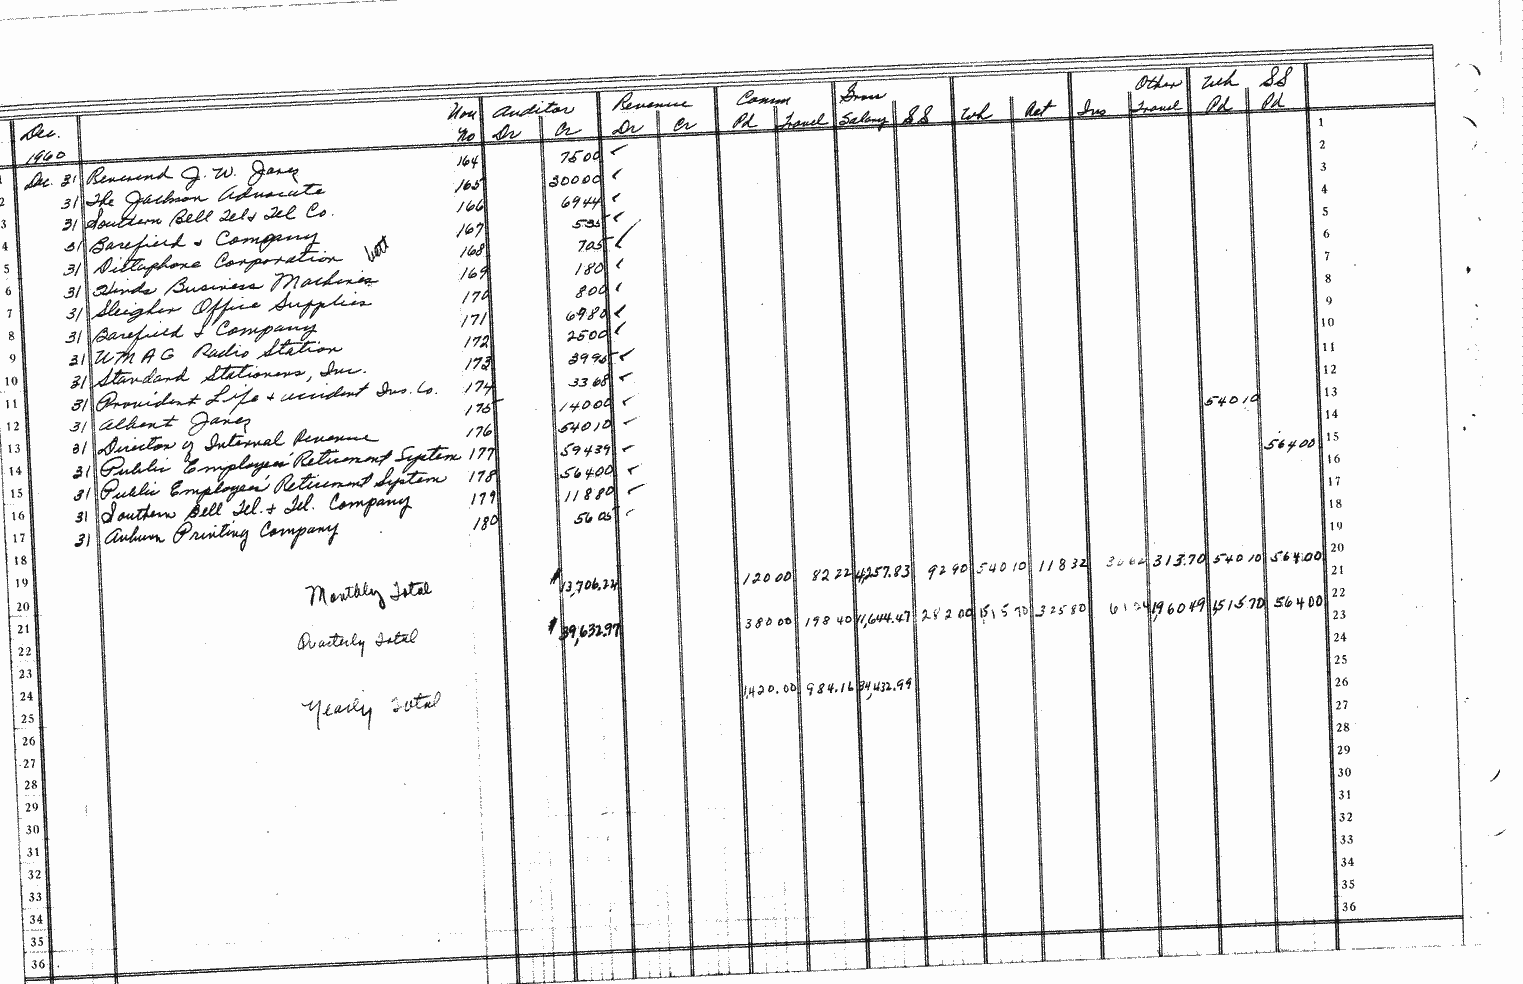 Dec. 1960 Vou No Auditor Dr Cr Revenue Dr Cr Comm Pd Travel Gross Salary SS Wh Ret Ins Other Travel Wh Pd SS Pd
1 Dec. 31 Reverend J. W. Jones 164 7500 ✓ 1
2 31 The Jackson Advocate 165 30000 ✓ 2
3 31 Southern Bell Tel & Tel Co. 166 6944 ✓ 3
4 31 Barefield & Company 167 535 ✓ 4
5 31 Dictaphone Corporation 168 705 ✓ 5
6 31 Hinds Business Machines 169 180 ✓ 6
7 31 Sleigher Office Supplies 170 800 ✓ 7
8 31 Barefield & Company 171 6980 ✓ 8
9 31 WMAG Radio Station 172 2500 ✓ 9
10 31 Standard Stationers, Inc. 173 3995 ✓ 10
11 31 Provident Life & accident Ins. Co. 174 3368 ✓ 11
12 31 Albert Jones 175 14000 ✓ 12
13 31 Director of Internal Revenue 176 54010 ✓ 54010 13
14 31 Public Employees' Retirement System 177 59439 ✓ 14
15 31 Public Employees' Retirement System 178 56400 ✓ 56400 15
16 31 Southern Bell Tel. & Tel. Company 179 11880 ✓ 16
17 31 Auburn Printing Company 180 5605 ✓ 17
18 18
19 Monthly Total $13,706.24 12000 8222 4,257.83 9290 54010 11832 313.70 54010 56400 19
20 20
21 Quarterly Total $39,632.97 38000 19840 11,644.47 28200 151570 32580 1,960.49 1,515.70 56400 21
22 22
23 23
24 Yearly Total 1,420.00 984.16 34,432.99 24
25 25
26 26
27 27
28 28
29 29
30 30
31 31
32 32
33 33
34 34
35 35
36 36